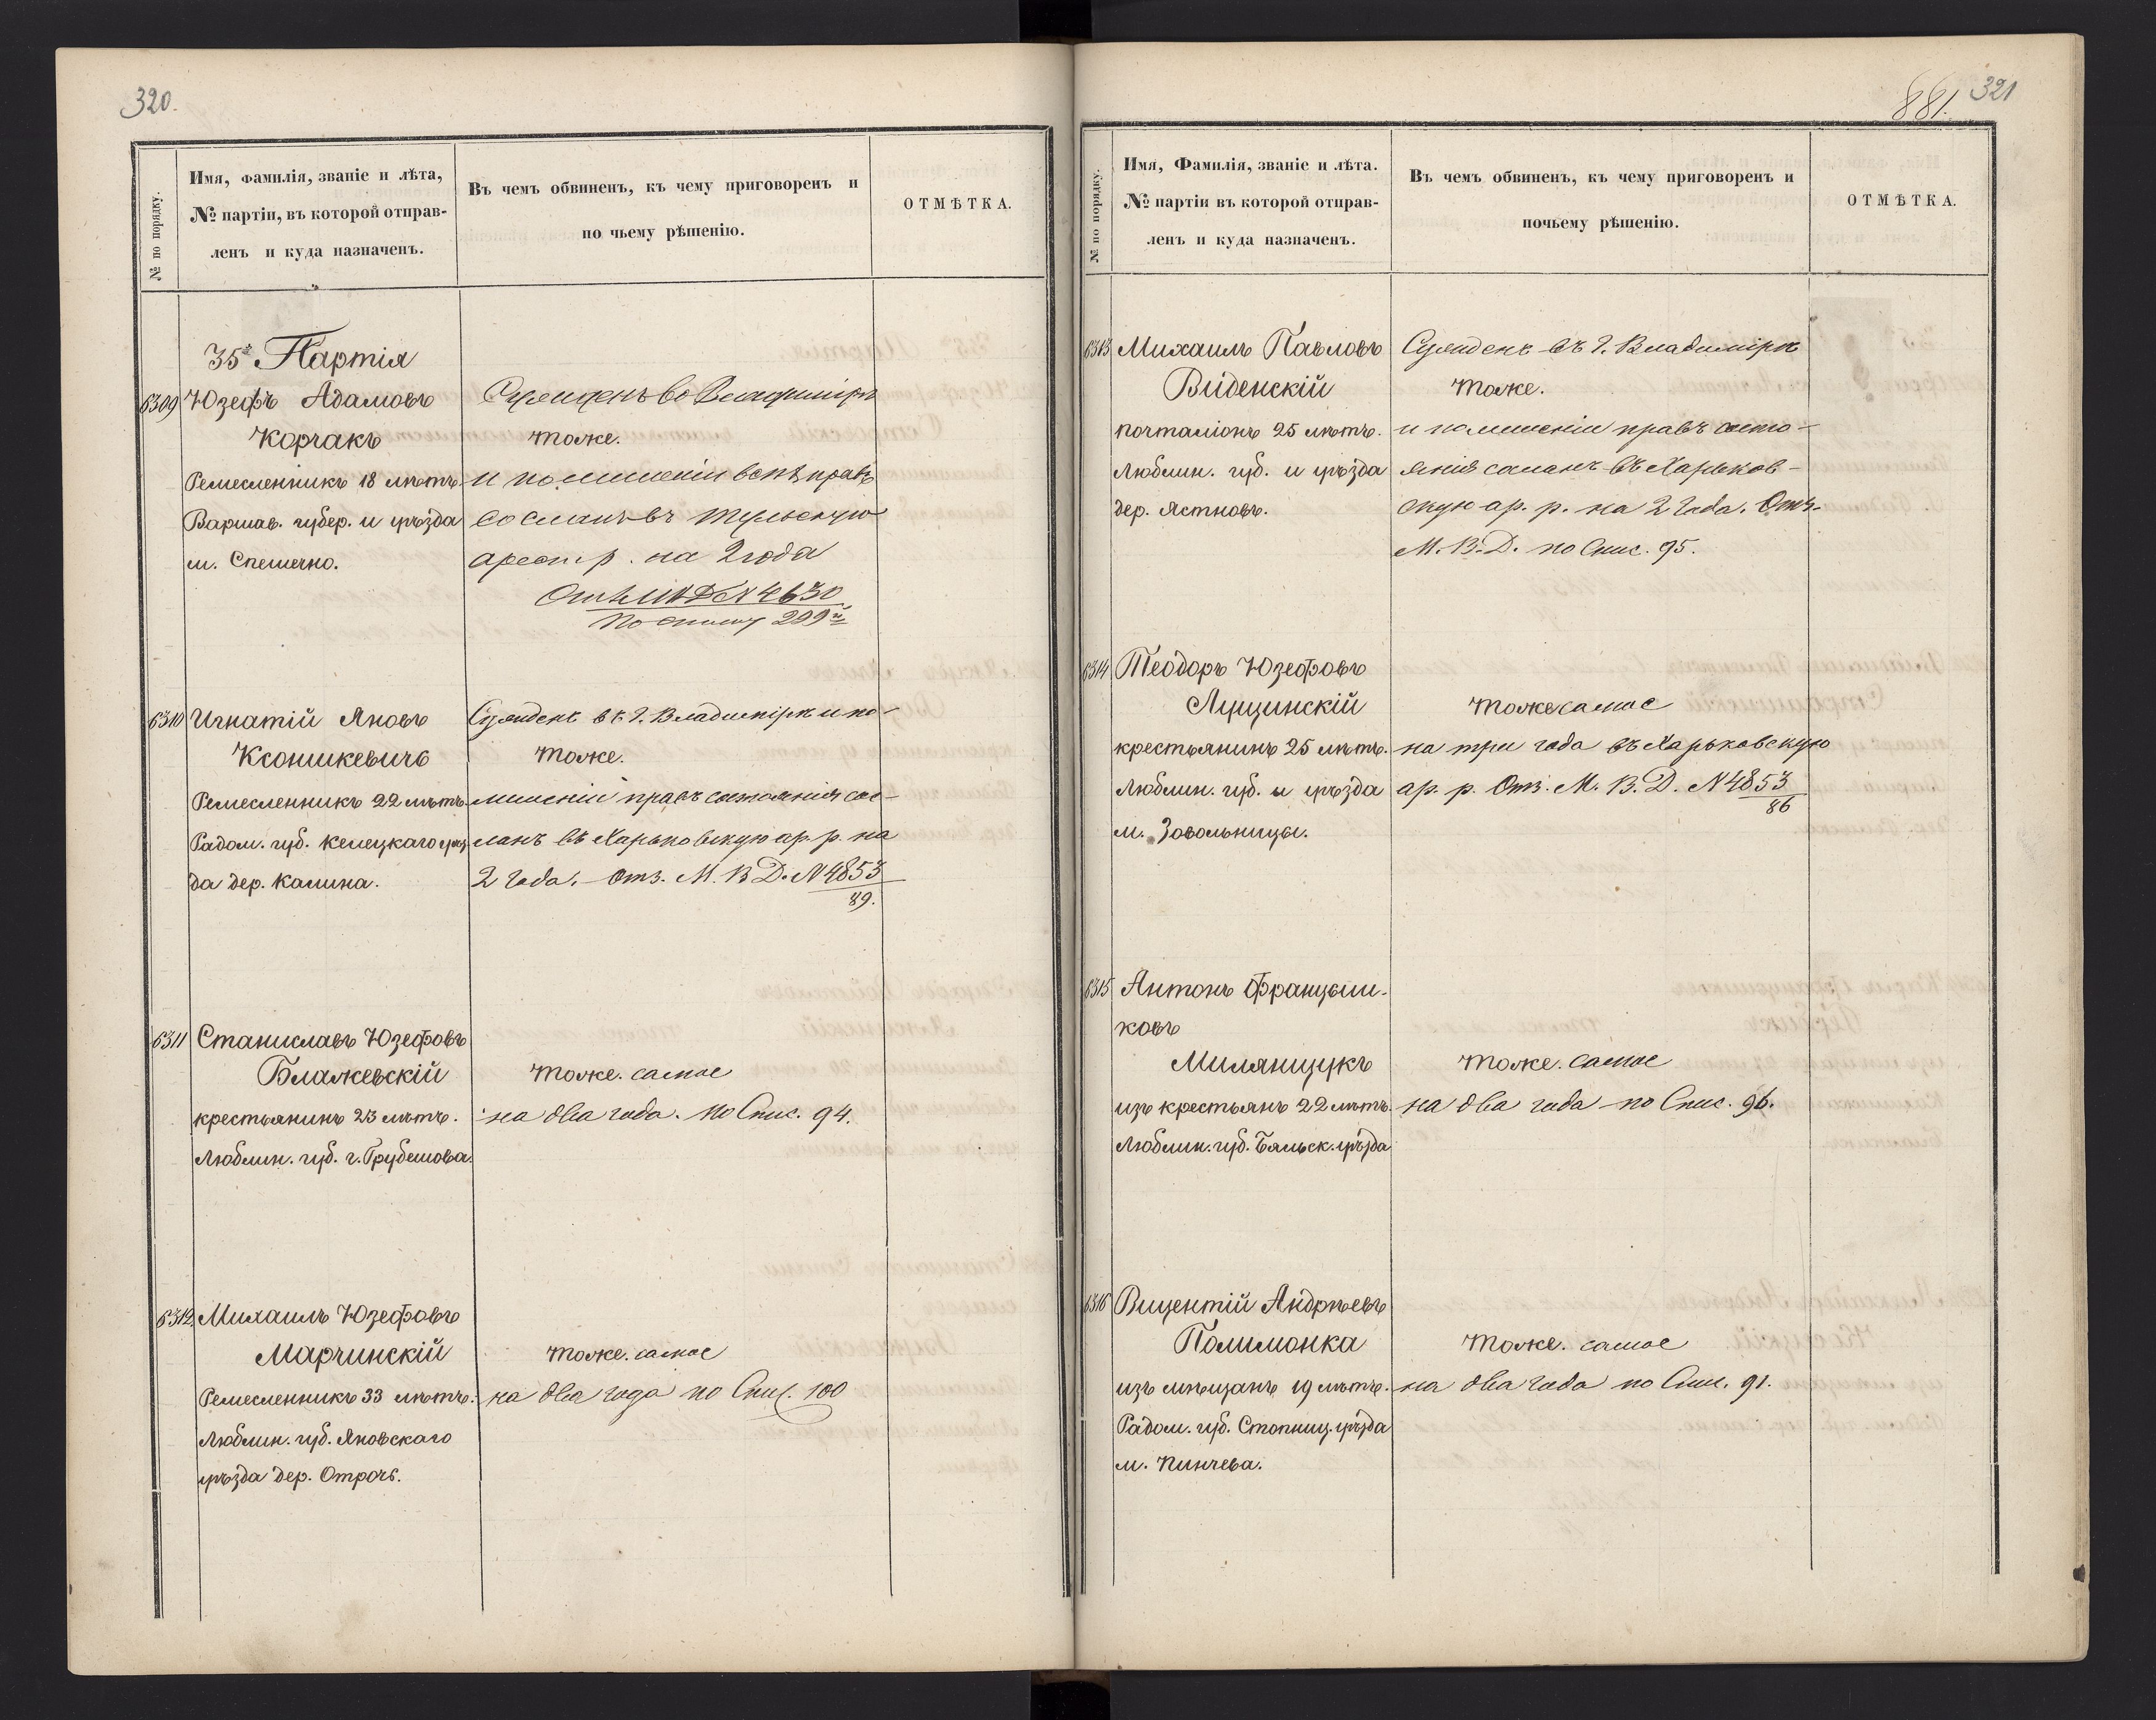 320.
№ по порядку.
Имя, фамилія, званіе и лѣта,
№ партіи, въ которой отправ-
ленъ и куда назначенъ.
Въ чемъ обвиненъ, къ чему приговоренъ и
по чьему рѣшенію.
ОТМѢТКА.
35я Партія
6309 Юзефъ Адамовъ
Корчакъ
Ремесленникъ 18 лѣтъ.
Варшав. губер. и уѣзда
м.
Сужденъ во Владимірѣ
тоже.
и по лишеніи всѣхъ правъ
сосланъ въ Тульскую
арест. р. на 2 года
Отз. М В Д № 4630
по списку 299й
6310 Игнатій Яновъ
Ксонжкевичъ
Ремесленникъ 22 лѣтъ
Радом. губ. Келецкаго уѣз
да дер. Калина.
Сужденъ въ г. Владимірѣ и по-
тоже.
лишеніи правъ состоянія сос-
ланъ въ Харьковскую ар. р. на
2 года. Отз. М. В. Д. № 4853
89.
6311 Станиславъ Юзефовъ
Блажевскій
крестьянинъ 23 лѣтъ.
Люблин. губ. г. Грубешова.
тоже. самое
на два года. по Спис. 94.
6312 Михаилъ Юзефовъ
Марчинскій
Ремесленникъ 33 лѣтъ.
Люблин. губ. Яновскаго
уѣзда дер. Отрочь.
тоже. самое
на два года по Спис. 100
881. 321
№ по порядку.
Имя, Фамилія, званіе и лѣта.
№ партіи въ которой отправ-
ленъ и куда назначенъ.
Въ чемъ обвиненъ, къ чему приговоренъ и
почьему рѣшенію.
ОТМѢТКА.
6313 Михаилъ Павловъ
Виденскій
почталіонъ 25 лѣтъ.
Люблин. губ. и уѣзда
дер. Ястновъ.
Сужденъ въ г. Владимірѣ
тоже.
и по лишеніи правъ состо-
янія сосланъ въ Харьков-
скую ар. р. на 2 года. Отз.
М. В. Д. по Спис. 95.
6314 Теодоръ Юзефовъ
Лущинскій
крестьянинъ 25 лѣтъ.
Люблин. губ. и уѣзда
м. Завольницы.
тоже самое
на три года въ Харьковскую
ар. р. Отз. М. В. Д. № 4853
86
6315 Антонъ Францыш-
ковъ
Милянщукъ
изъ крестьянъ 22 лѣтъ.
Люблин. губ. Бяльск. уѣзда
тоже. самое
на два года по Спис. 96.
6316 Вицентій Андрѣевъ
Полимонка
изъ мѣщанъ 19 лѣтъ.
Радом. губ. Стопниц. уѣзда
м. Пинчева.
тоже. самое
на два года по Спис. 91.